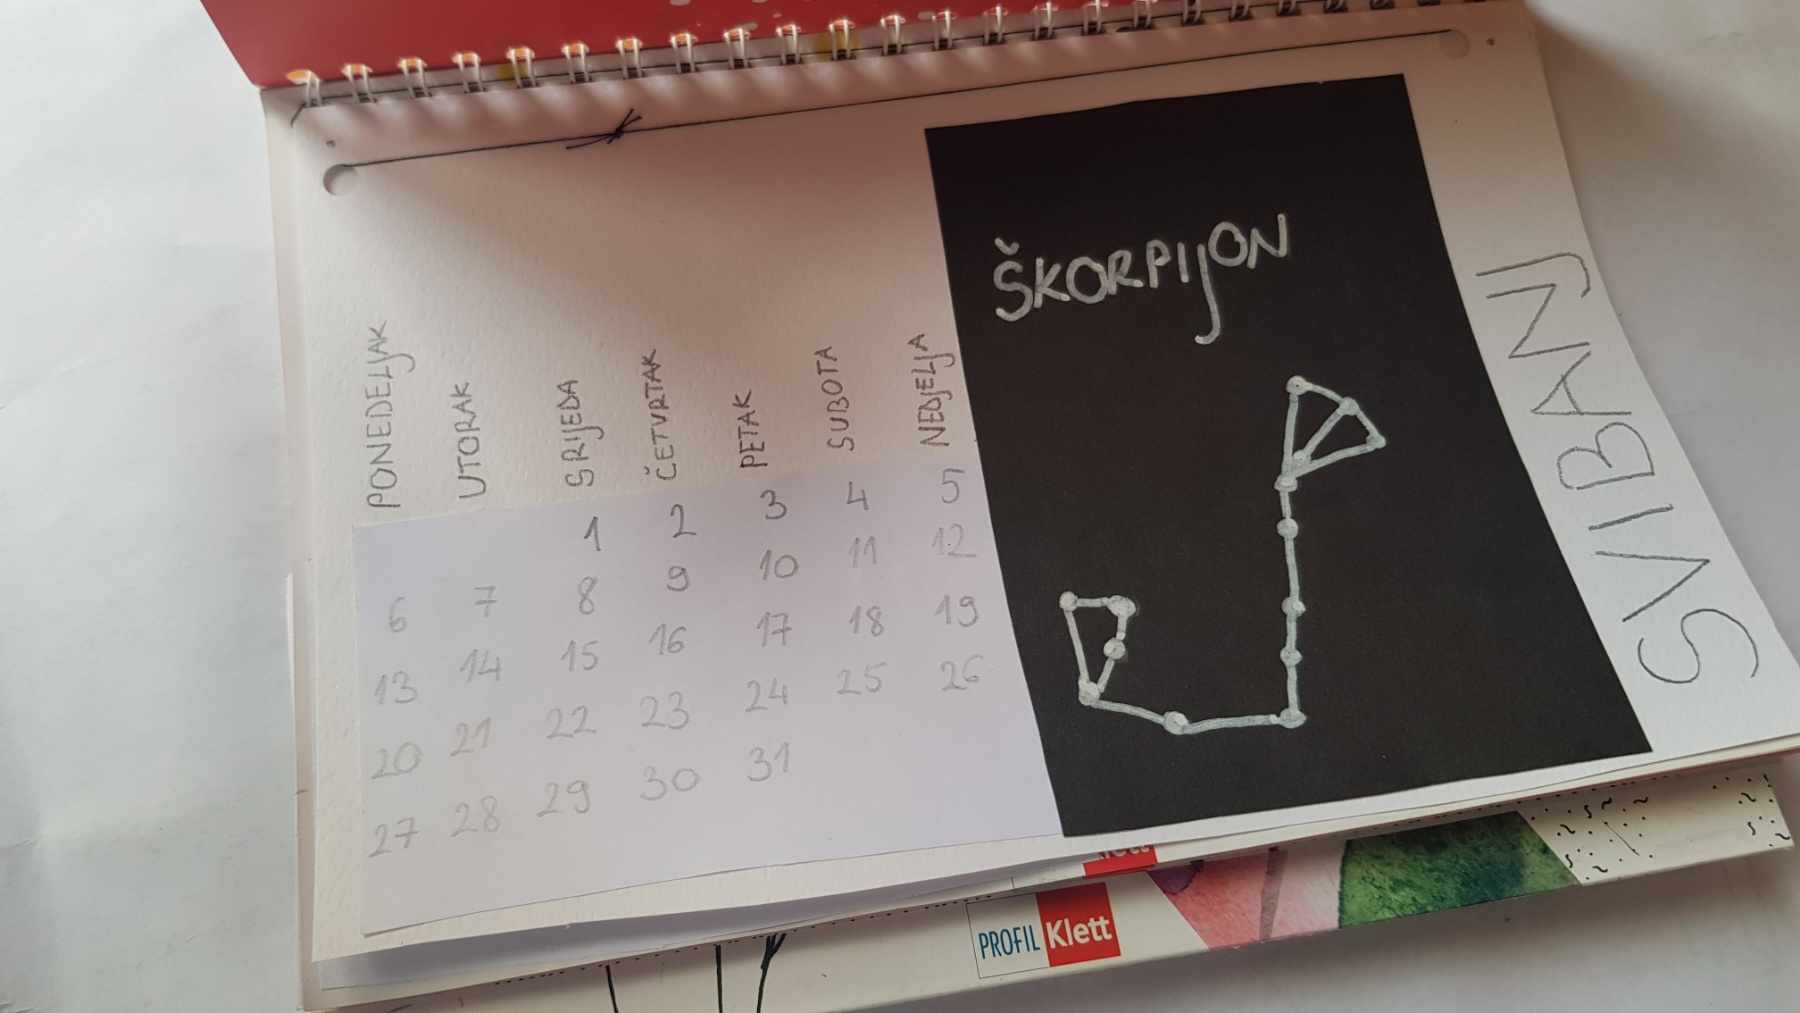 ŠKORPIJON
SVIBANJ
PONEDELJAK UTORAK SRIJEDA ČETVRTAK PETAK SUBOTA NEDJELJA
1 2 3 4 5
6 7 8 9 10 11 12
13 14 15 16 17 18 19
20 21 22 23 24 25 26
27 28 29 30 31
Klett
PROFIL Klett